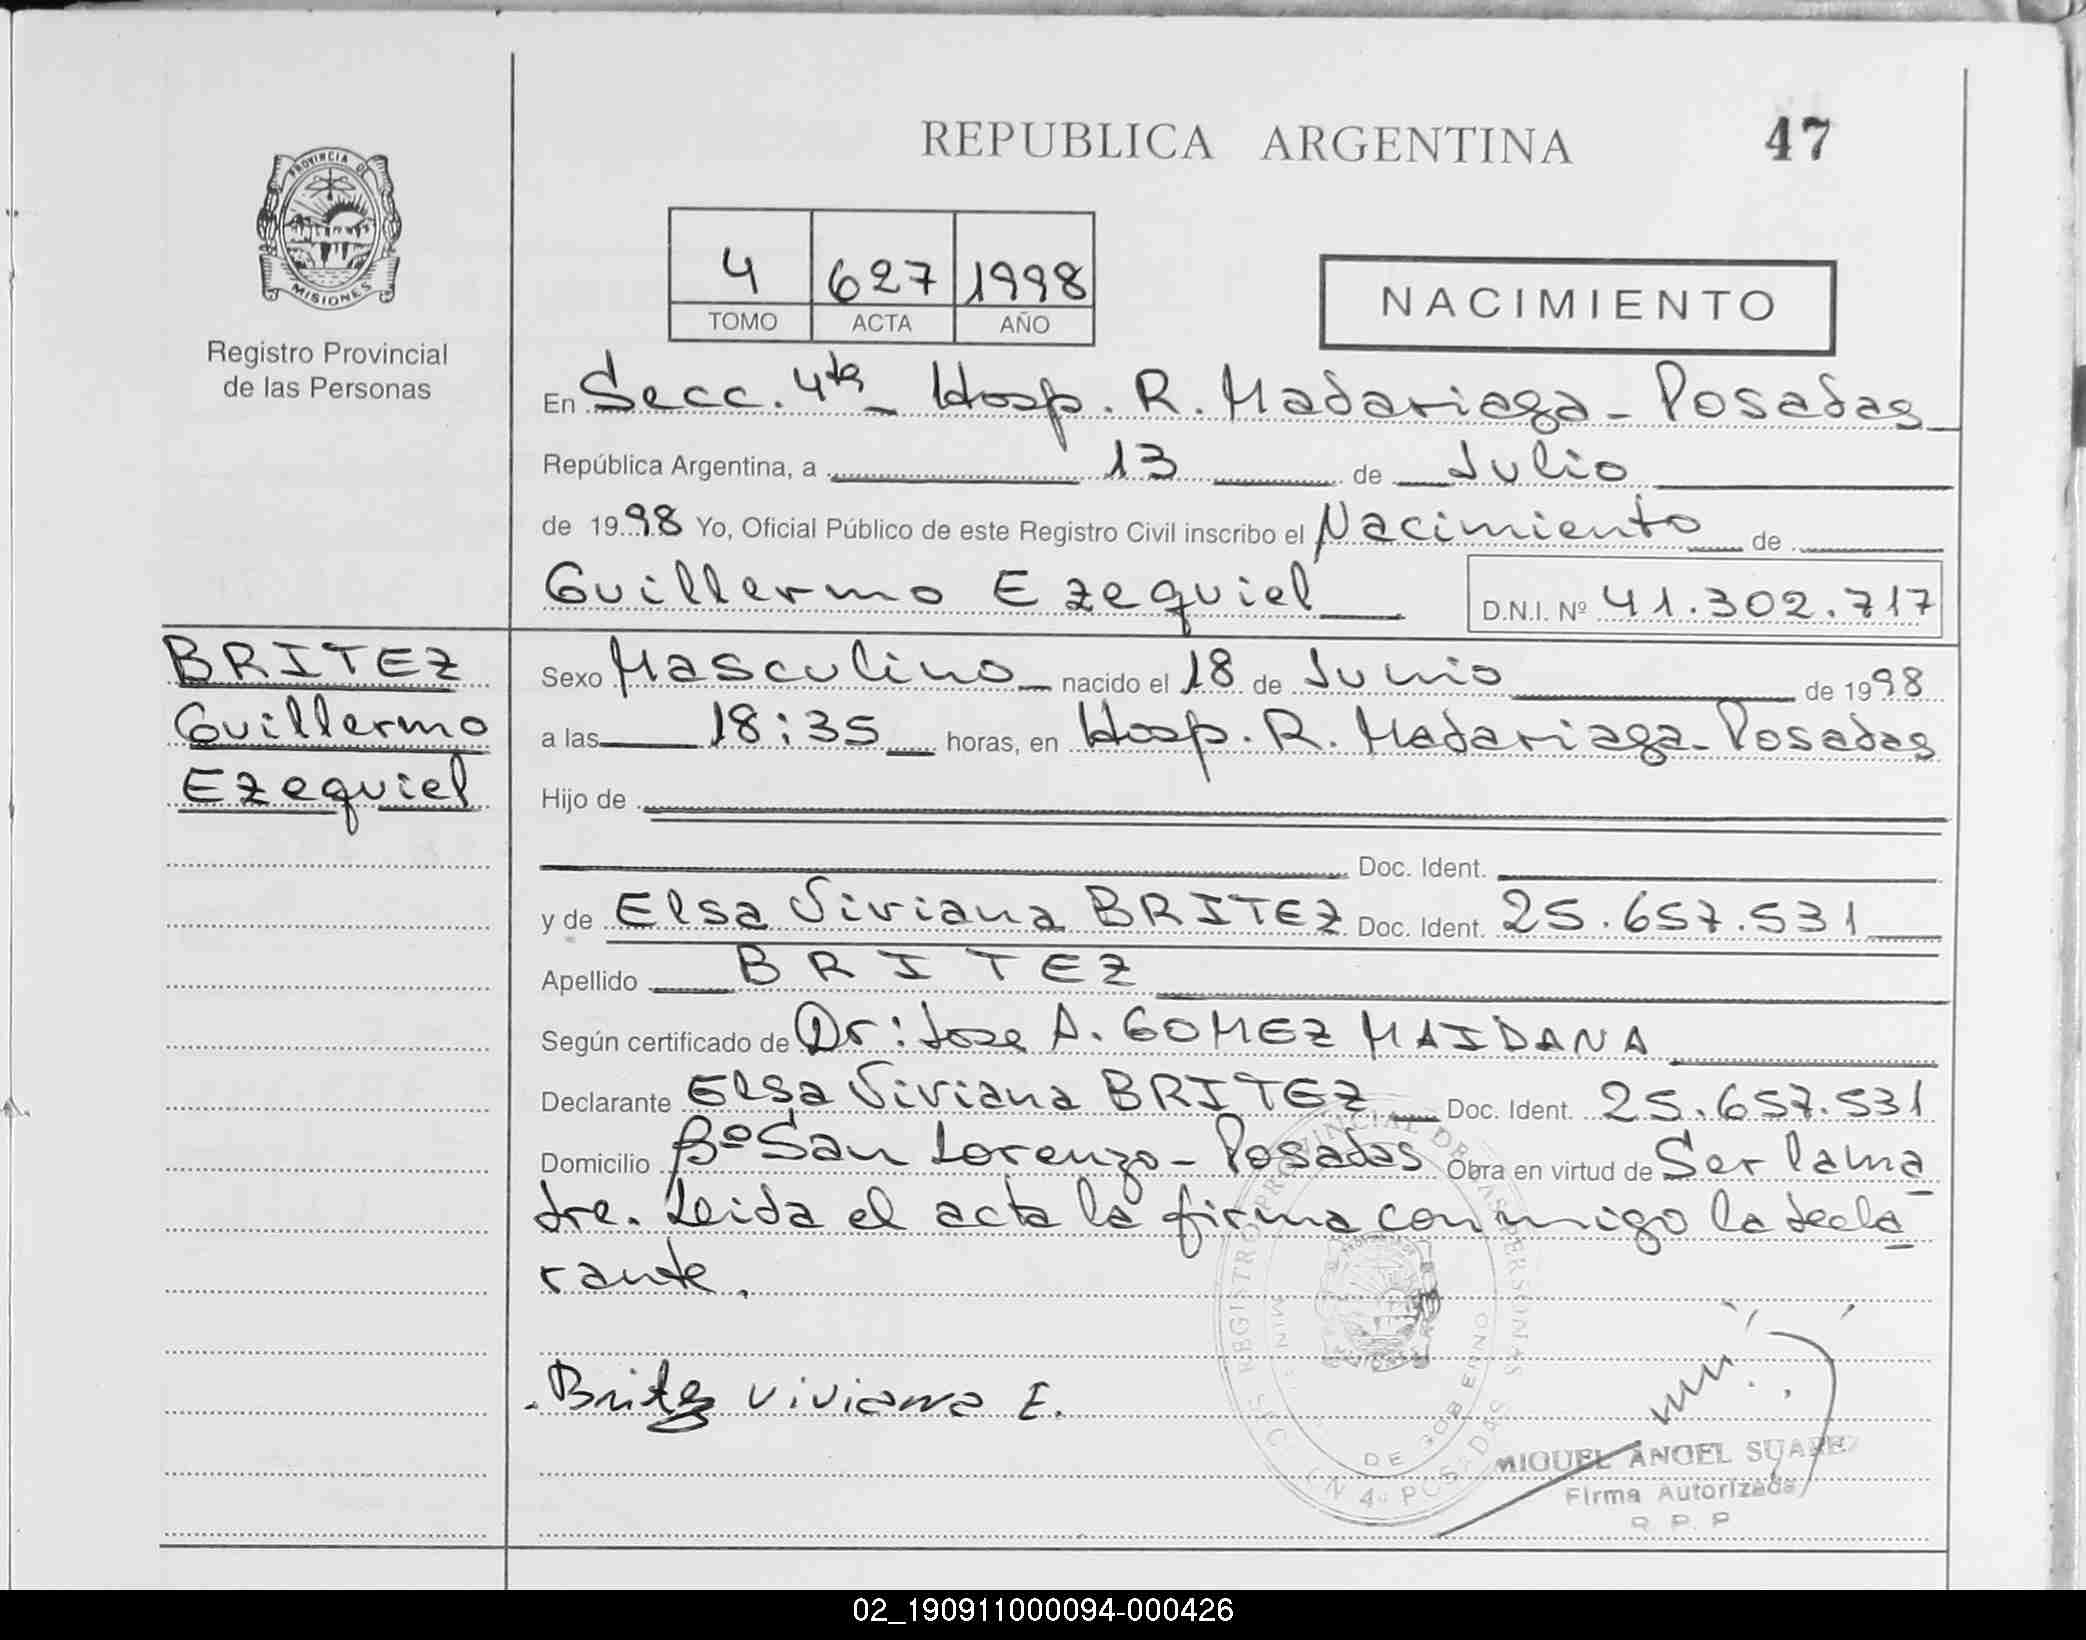 REPUBLICA ARGENTINA
47
PROVINCIA DE
MISIONES
Registro Provincial
de las Personas
4 627 1998
TOMO ACTA AÑO
NACIMIENTO
En Secc. 4ta - Hosp. R. Madariaga - Posadas
República Argentina, a 13 de Julio
de 1998 Yo, Oficial Público de este Registro Civil inscribo el Nacimiento de
Guillermo Ezequiel D.N.I. Nº 41.302.717
BRITEZ
Guillermo
Ezequiel
Sexo Masculino nacido el 18 de Junio de 1998
a las 18:35 horas, en Hosp. R. Madariaga - Posadas
Hijo de
Doc. Ident.
y de Elsa Viviana BRITEZ Doc. Ident. 25.657.531
Apellido BRITEZ
Según certificado de Dr: Jose A. GOMEZ MAIDANA
Declarante Elsa Viviana BRITEZ Doc. Ident. 25.657.531
Domicilio Bº San Lorenzo - Posadas Obra en virtud de Ser la ma
dre. Leida el acta la firma conmigo la decla
rante.
REGISTRO PROVINCIAL DE LAS PERSONAS
DE GOBIERNO
4ª POSADAS
Britez Viviana E.
MIGUEL ANGEL SUAREZ
Firma Autorizada
R. P. P
02_190911000094-000426